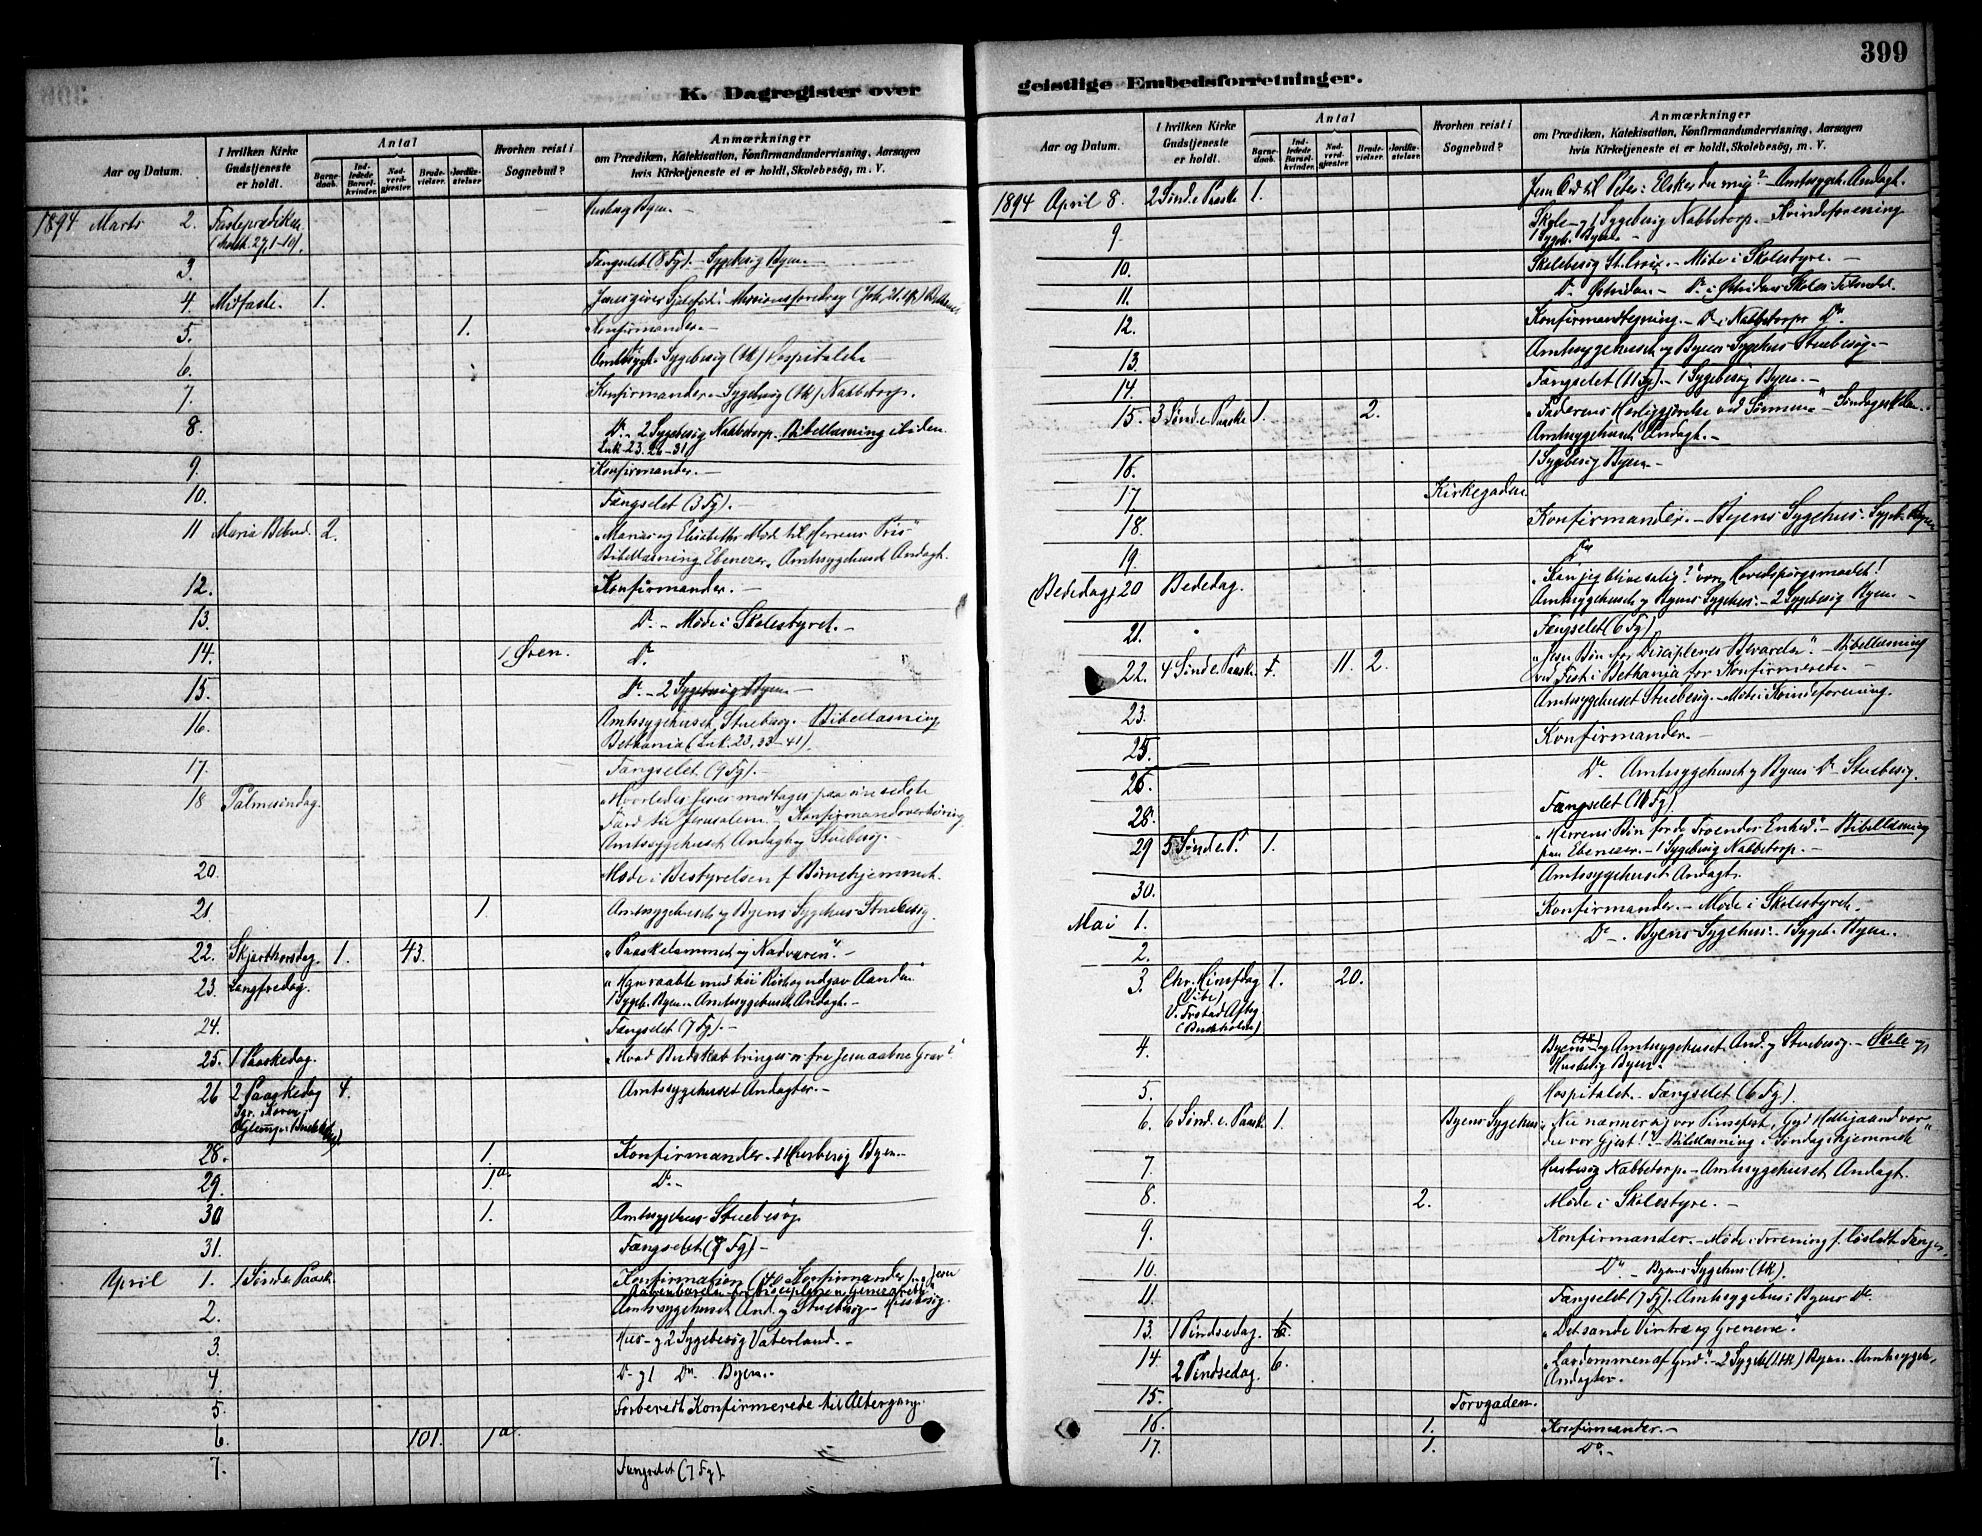 399
K. Dagregister over
geistlige Embedsforretninger.
Aar og Datum.
I hvilken Kirke Gudstjeneste er holdt.
Antal
Barne-daab.
Ind-ledede Barsel-kvinder.
Nad-verd-gjester.
Brude-vielser.
Jordfæ-stelser.
Hvorhen reist i Sognebud?
Anmærkninger
om Prædiken, Katekisation, Konfirmandundervisning, Aarsagen
hvis Kirketjeneste ei er holdt, Skolebesög, m. V.
1894 Marts 2. Fasteprædiken
3. Fængselet (8 Fg). - Sygebesög Byen. -
4. Midfaste. 1.
5. 1. Konfirmander. -
6. Sygebesög (tk) Hospitalet
7. Konfirmander. - Sygebesög (tk) Nabbetorp.
8. Do. - 2 Sygebesög Nabbetorp. Bibellæsning
Luk. 23. 26-31
9. Konfirmander. -
10. Fængselet (3 Fg). -
11 Maria Bebud. 2. „Marias og Elisabeths Møde til Herrens Pris"
Bibellæsning Ebenezer. Amtssygehuset Andagt.
12. Konfirmander. -
13. Do. - Møde i Skolestyret. -
14. 1 Øren. Do.
15. Do. - 2 Sygebesög Byen -
16. Amtssygehuset Stuebesög. - Bibellæsning
Bethania (Luk. 23, 33-41).
17. Fængselet (9 Fg). -
18 Palmesöndag. „Hvorledes Jesus modtages paa sin sidste
Færd til Jerusalem." - Konfirmandoverhöring.
Amtssygehuset Andagt og Stuebesög. -
20. Møde i Bestyrelsen f. Børnehjemmet.
21. 1. Amtssygehuset og Byens Sygehus Stuebesög.
22. Skjærthorsdag. 1. 43. „Paaskelammet og Nadveren". -
23. Langfredag. „Han raabte med høi Røst og udgav Aanden"
1 Sygeb. Byen. - Amtssygehuset Andagt. -
24. Fængselet (7 Fg). -
25. 1 Paaskedag. „Hvad Budskab bringes os fra Jesu aabne Grav?"
26 2 Paaskedag 4. Amtssygehuset Andagter. -
28. 1. Konfirmander. - 1 Husbesög Byen. -
29. 1a Do. -
30 1. Amtssygehus Stuebesög.
31. Fængselet (7 Fg) -
April 1. 1 Sönd e. Paaske. Konfirmation (40 Konfirmander)
2. Amtssygehuset And. og Stuebesög - Husbesög
3. Hus- og 2 Sygebesög Vaterland. -
4. Do - og 1 Do. Byen. -
5. Forberedt Konfirmerede til Altergang.
6. 101. 1a.
7. Fængselet (7 Fg).
Aar og Datum.
I hvilken Kirke Gudstjeneste er holdt.
Antal
Barne-daab.
Ind-ledede Barsel-kvinder.
Nad-verd-gjester.
Brude-vielser.
Jordfæ-stelser.
Hvorhen reist i Sognebud?
Anmærkninger
om Prædiken, Katekisation, Konfirmandundervisning, Aarsagen
hvis Kirketjeneste ei er holdt, Skolebesög, m. V.
1894 April 8. 2 Sönd e Paaske 1. Jesu Ord til Peter: Elsker du mig? - Amtssygeh. Andagt.
9. Skole- og 1 Sygebesög Nabbetorp. - Kvindeforening
1 Sygeb. Byen. -
10. Skolebesög St. Croix. - Møde i Skolestyre. -
11. Do Østsiden. -
12. Konfirmandtegning. - Do i Nabbetorps Do.
13. Amtssygehuset og Byens Sygehus Stuebesög. -
14. Fængselet (11 Fg). - 1 Sygebesög Byen. -
15. 3 Sönd e Paaske 1. 2. „Faderens Herliggjörelse ved Sønnen." - Søndagsskolen.
Amtssygehuset Andagt. -
16. 1 Sygebesög Byen. -
17. Kirkegaden
18. Konfirmander. - Byens Sygehus. Sygeb. Byen
19. Do
Bededag 20 Bededag. „Kan jeg blive salig?" vort Hovedspørgsmaal!
Amtssygehuset og Byens Sygehus. - 2 Sygebesög Byen. -
21. Fængselet (6 Fg)
22. 4 Sönd e. Paaske. 1. 11. 2. „Jesu Bøn for Disciplenes Bevarelse". - Bibellæsning
ved Fest i Bethania for Konfirmerede. -
23. Amtssygehuset Stuebesög. - Møde i Kvindeforening.
25. Konfirmander. -
26. Do. Amtssygehuset og Byens Do Stuebesög.
28. Fængselet
29 5 Sönd e. P. 1. „Herrens Bøn for de Troendes Enhed." - Bibellæsning
paa Ebenezer. - 1 Sygebesög Nabbetorp. -
30. Amtssygehuset Andagt.
Mai 1. Konfirmander. - Møde i Skolestyret.
2. Do - Byens Sygehus. 1 Sygeb. Byen.
3. Chr. Himlfdag 1. 20.
4. Byens (tk) og Amtssygehuset And. og Stuebesög. - Skole og
Husbesög Byen.
5. Hospitalet. Fængselet (6 Fg).
6. 6 Sönd. e. Paaske 1. Byens Sygehus. „Nu nærmer sig vor Pinsefest, Gud Helligaand vær
du vor Gjest!" - Bibellæsning i Søndagshjemmet
7. Husbesög Nabbetorp. - Amtssygehuset Andagt.
8. 2. Møde i Skolestyre. -
9. Konfirmander. - Møde i Forening f. løsladte Fanger.
10. Do - Byens Sygehus (tk).
11. Fængselet (7 Fg). Amtssygehus i Byens Do.
13. 1 Pindsedag. „Det sande Vintræ og Grenene".
14. 2 Pindsedag. 6. „Lærdommen af Gud." - 2 Sygeb (1 tk) Byen. Amtssygeh.
Andagter.
15. Torvgaden.
16. 1. Konfirmander. -
17. 1. Do. -